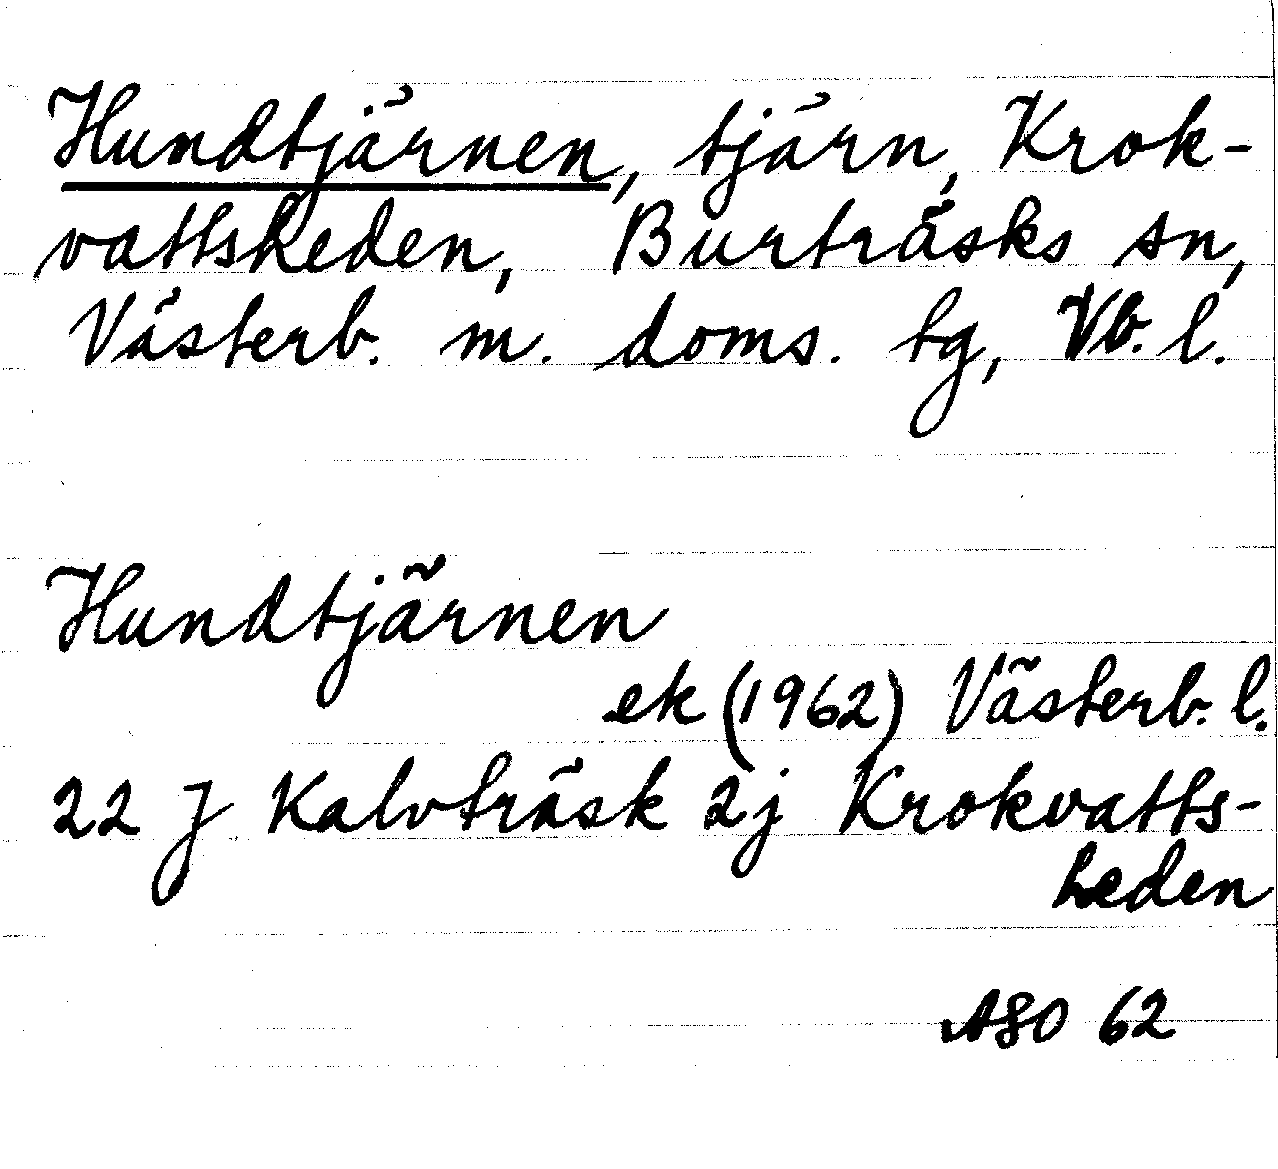 Hundtjärnen, tjärn, Krok-
vattsheden, Burträsks sn,
Västerb. m. doms. tg, Vb. l.
Hundtjärnen
ek (1962) Västerb. l.
22 J Kalvträsk 2j Krokvatts-
heden
ASO 62